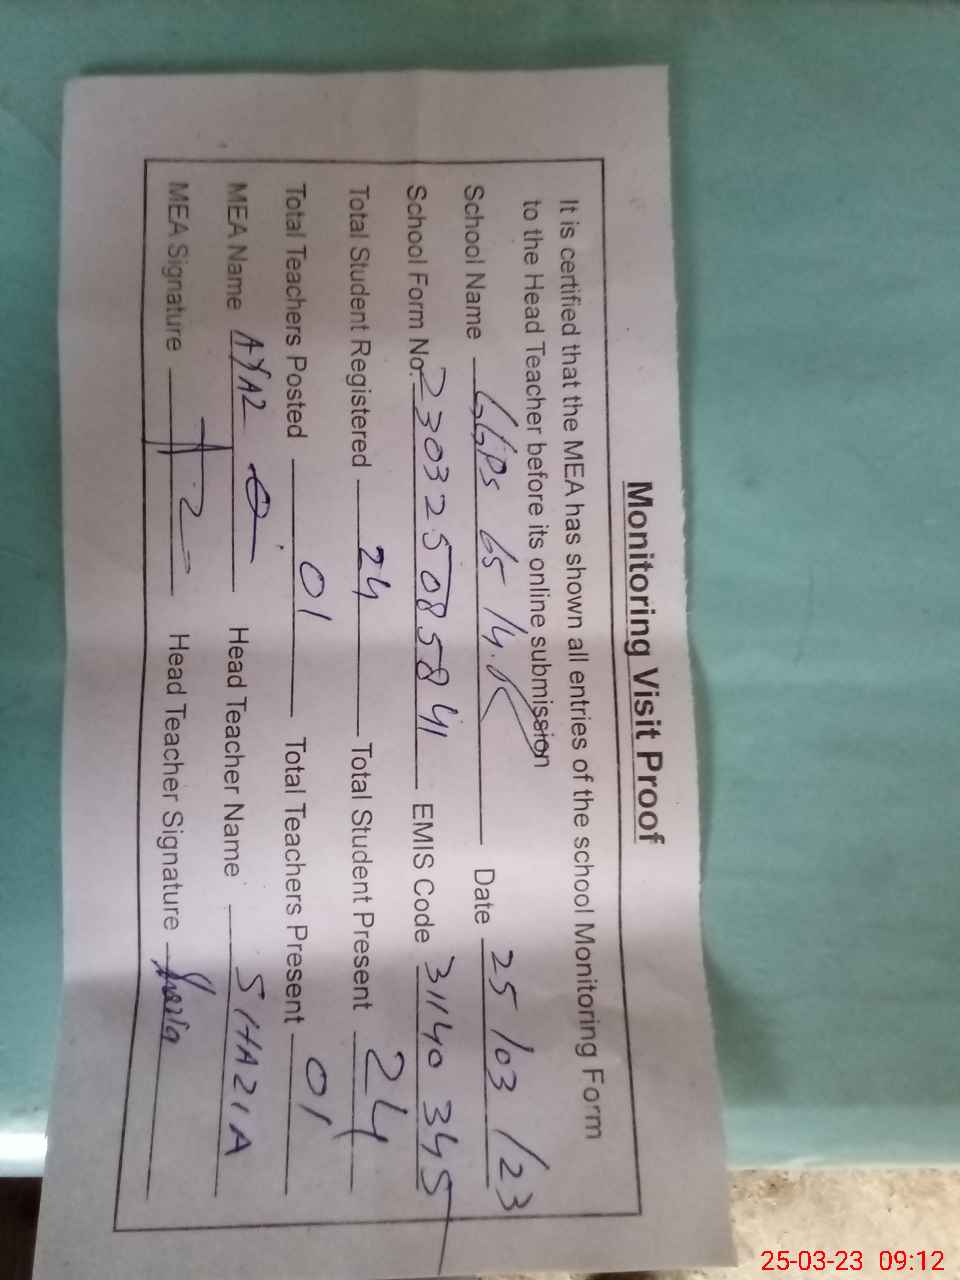 Monitoring Visit Proof
It is certified that the MEA has shown all entries of the school Monitoring Form
to the Head Teacher before its online submission
School Name GGPS 65 14.R Date 25/03/23
School Form No. 230325085841 EMIS Code 31140345
Total Student Registered 24 Total Student Present 24
Total Teachers Posted 01 Total Teachers Present 01
MEA Name AYAZ Head Teacher Name SHAZIA
MEA Signature Head Teacher Signature
25-03-23 09:12